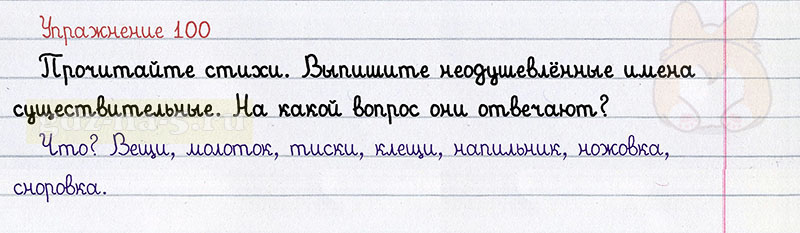 Упражнение 100
Прочитайте стихи. Выпишите неодушевлённые имена
существительные. На какой вопрос они отвечают?
Что? Вещи, молоток, тиски, клещи, напильник, ножовка,
сноровка.